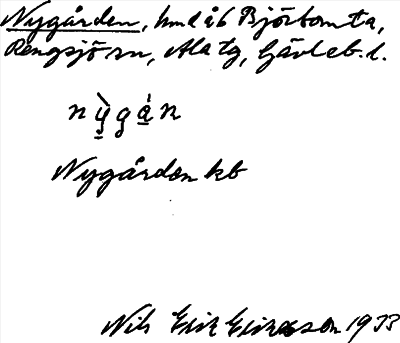 Nygården, hmd åb Björbomta,
Rengsjö sn, Ala tg, Gävleb. l.
nỳgán
Nygården kb
Nils Erik Eriksson 1933